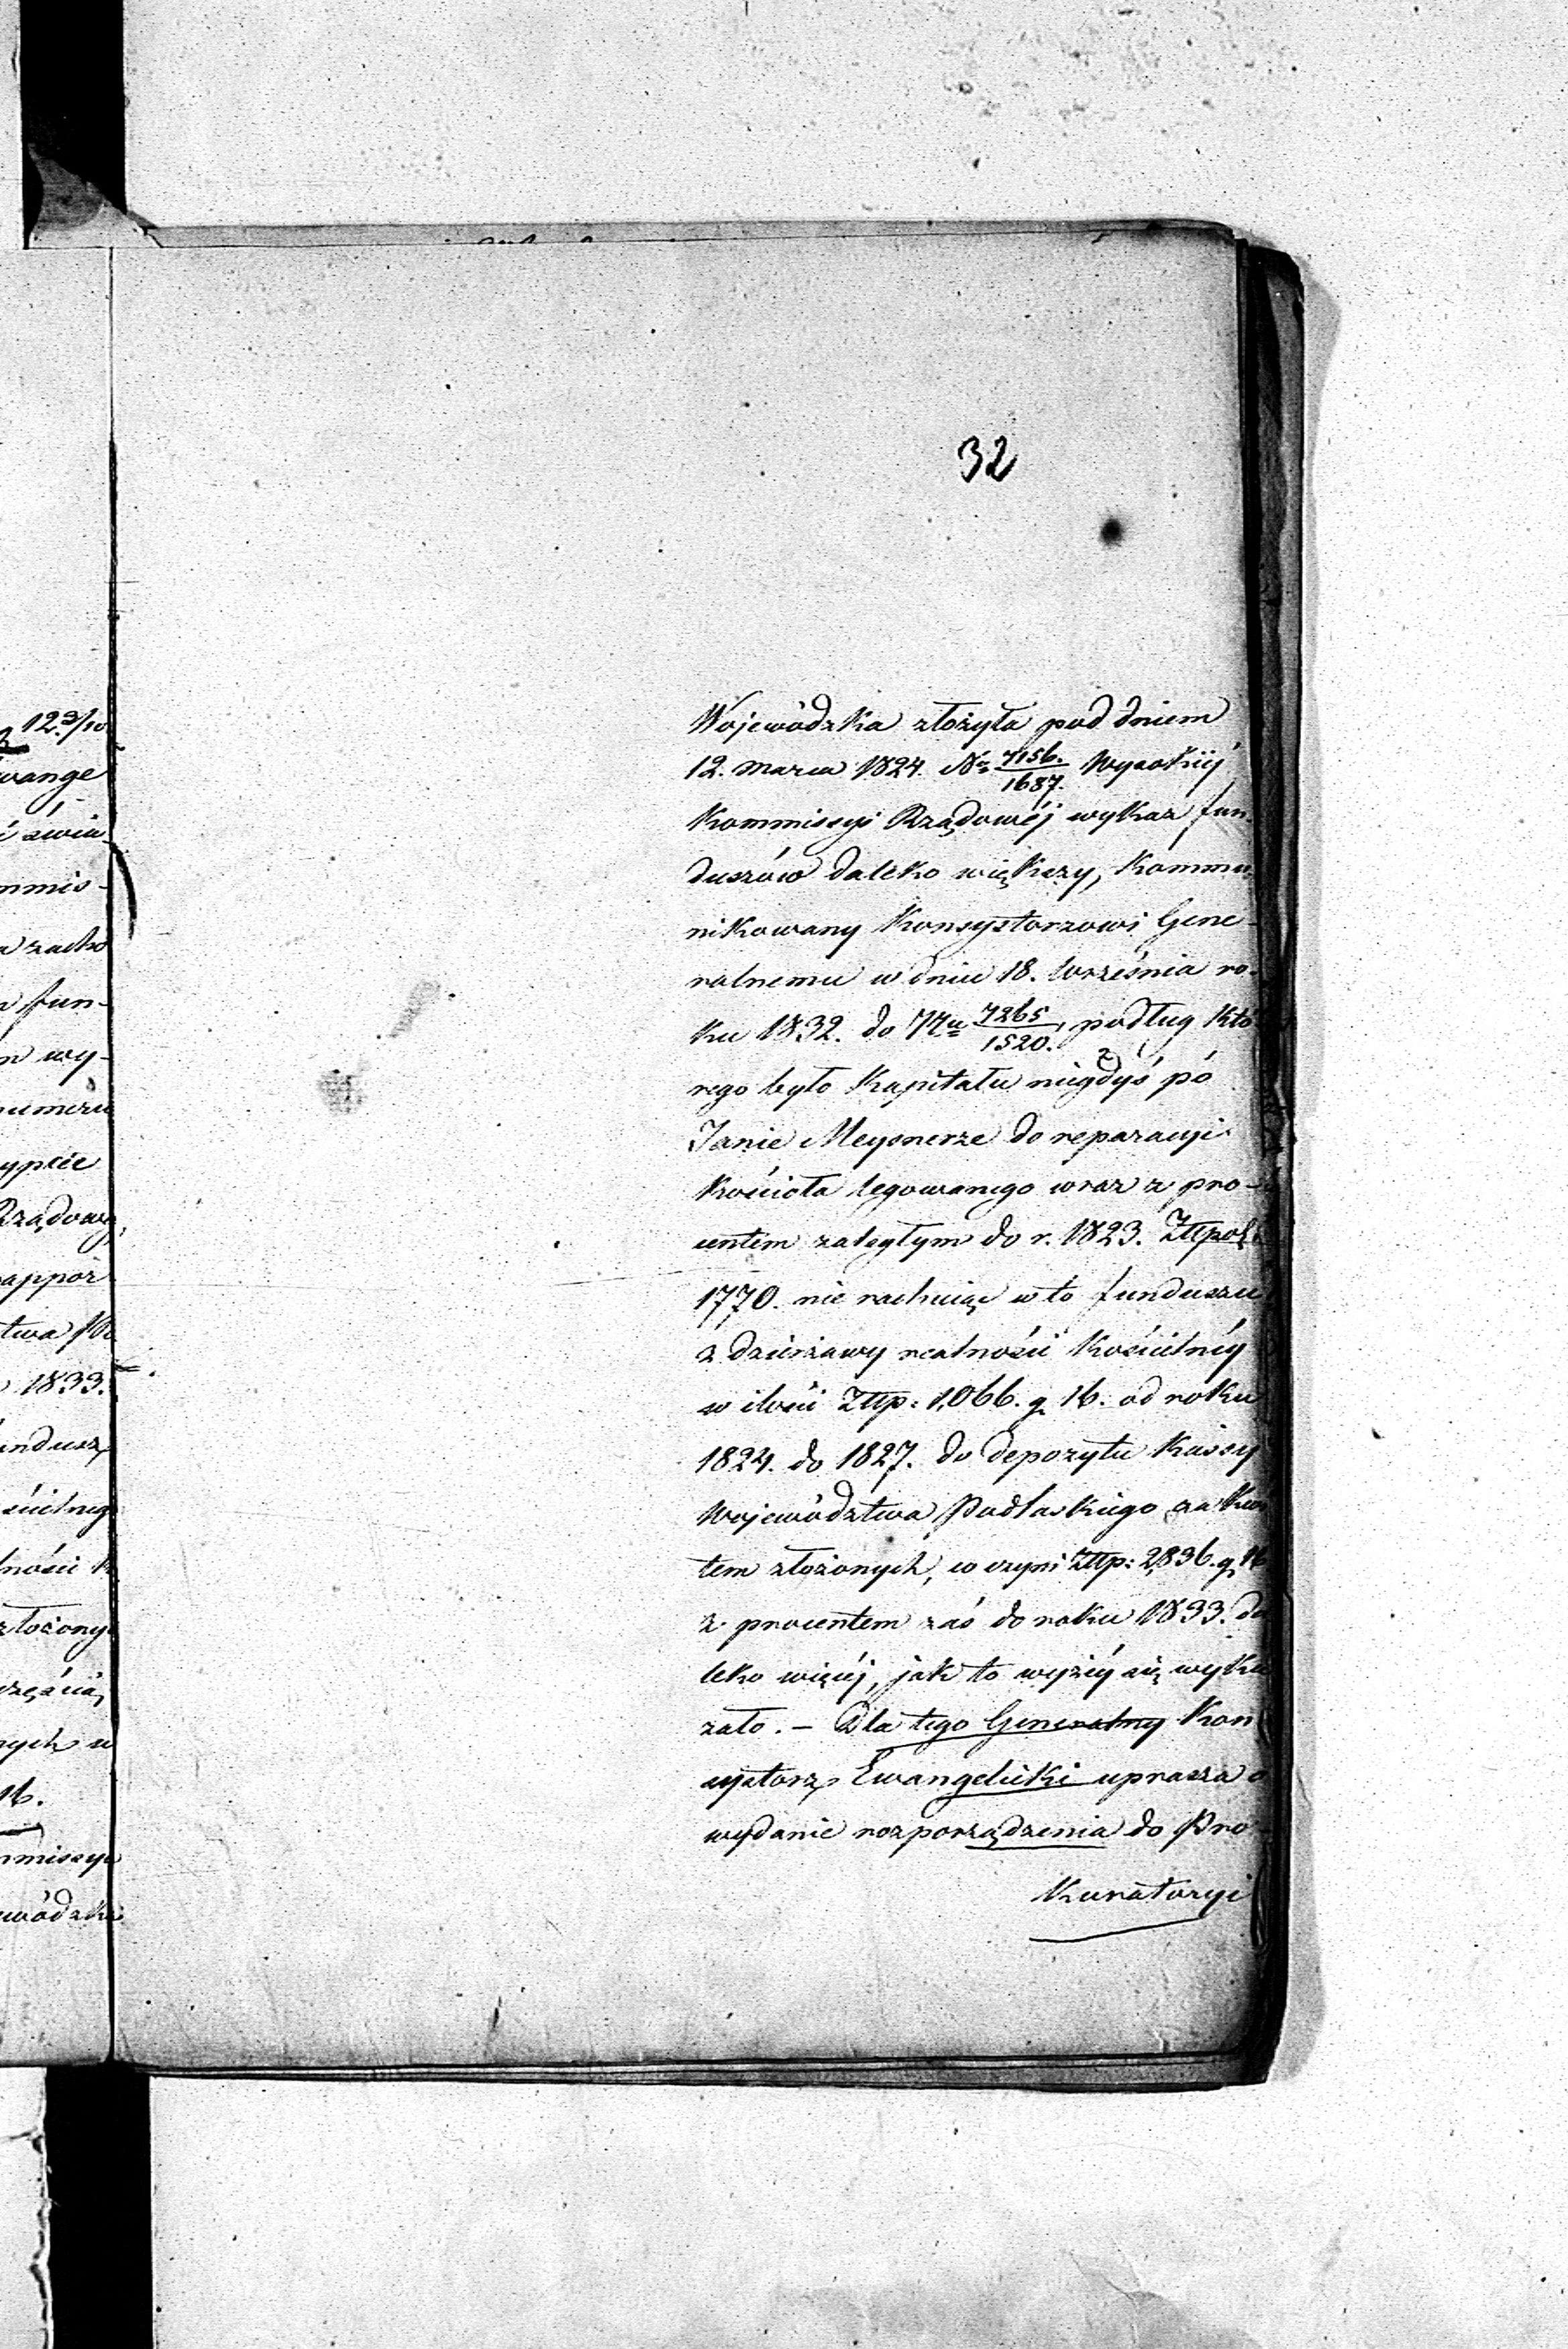 32
Wojewódzka złożyła pod dniem
12. Marca 1824. Nr. 7156./1687. Wysokiéj
Kommissyi Rządowéj wykaz fun-
duszów daleko większy, Kommu-
nikowany Konsystorzowi Gene-
ralnemu w dniu 18. Września ro-
ku 1832. do Nru 7265/1520., podług któ-
rego było Kapitału niegdyś pó
Janie Meysnerze do reparacyi
Kościoła legowanego wraz z pro-
centem zaległym do r. 1823. Złłpol:
1770. nie rachuiąc w to funduszu
z dzierżawy realności Kościelnéy
w ilości Złłp: 1,066. g. 16. od roku
1824. do 1827. do depozytu Kassy
Województwa Podlaskiego za Kwi
tem złożonych, co czyni Złłp: 2,836. g. 16
z procentem zaś do roku 1833. da
leko więcéj, jak to wyżéy się wyka
zało. – Dla tego Generalny Kon
systorz Ewangelicki uprasza o
wydanie rozporządzenia do Pro-
kuratoryi
12.3/10
wange
świa
mmis-
zacho
fun-
wy-
numeru
Rządowy
rappor
twa
1833.
undusz
ścielneg
lności
złożony
częścią
nych w
16.
mmissyi
wódzki